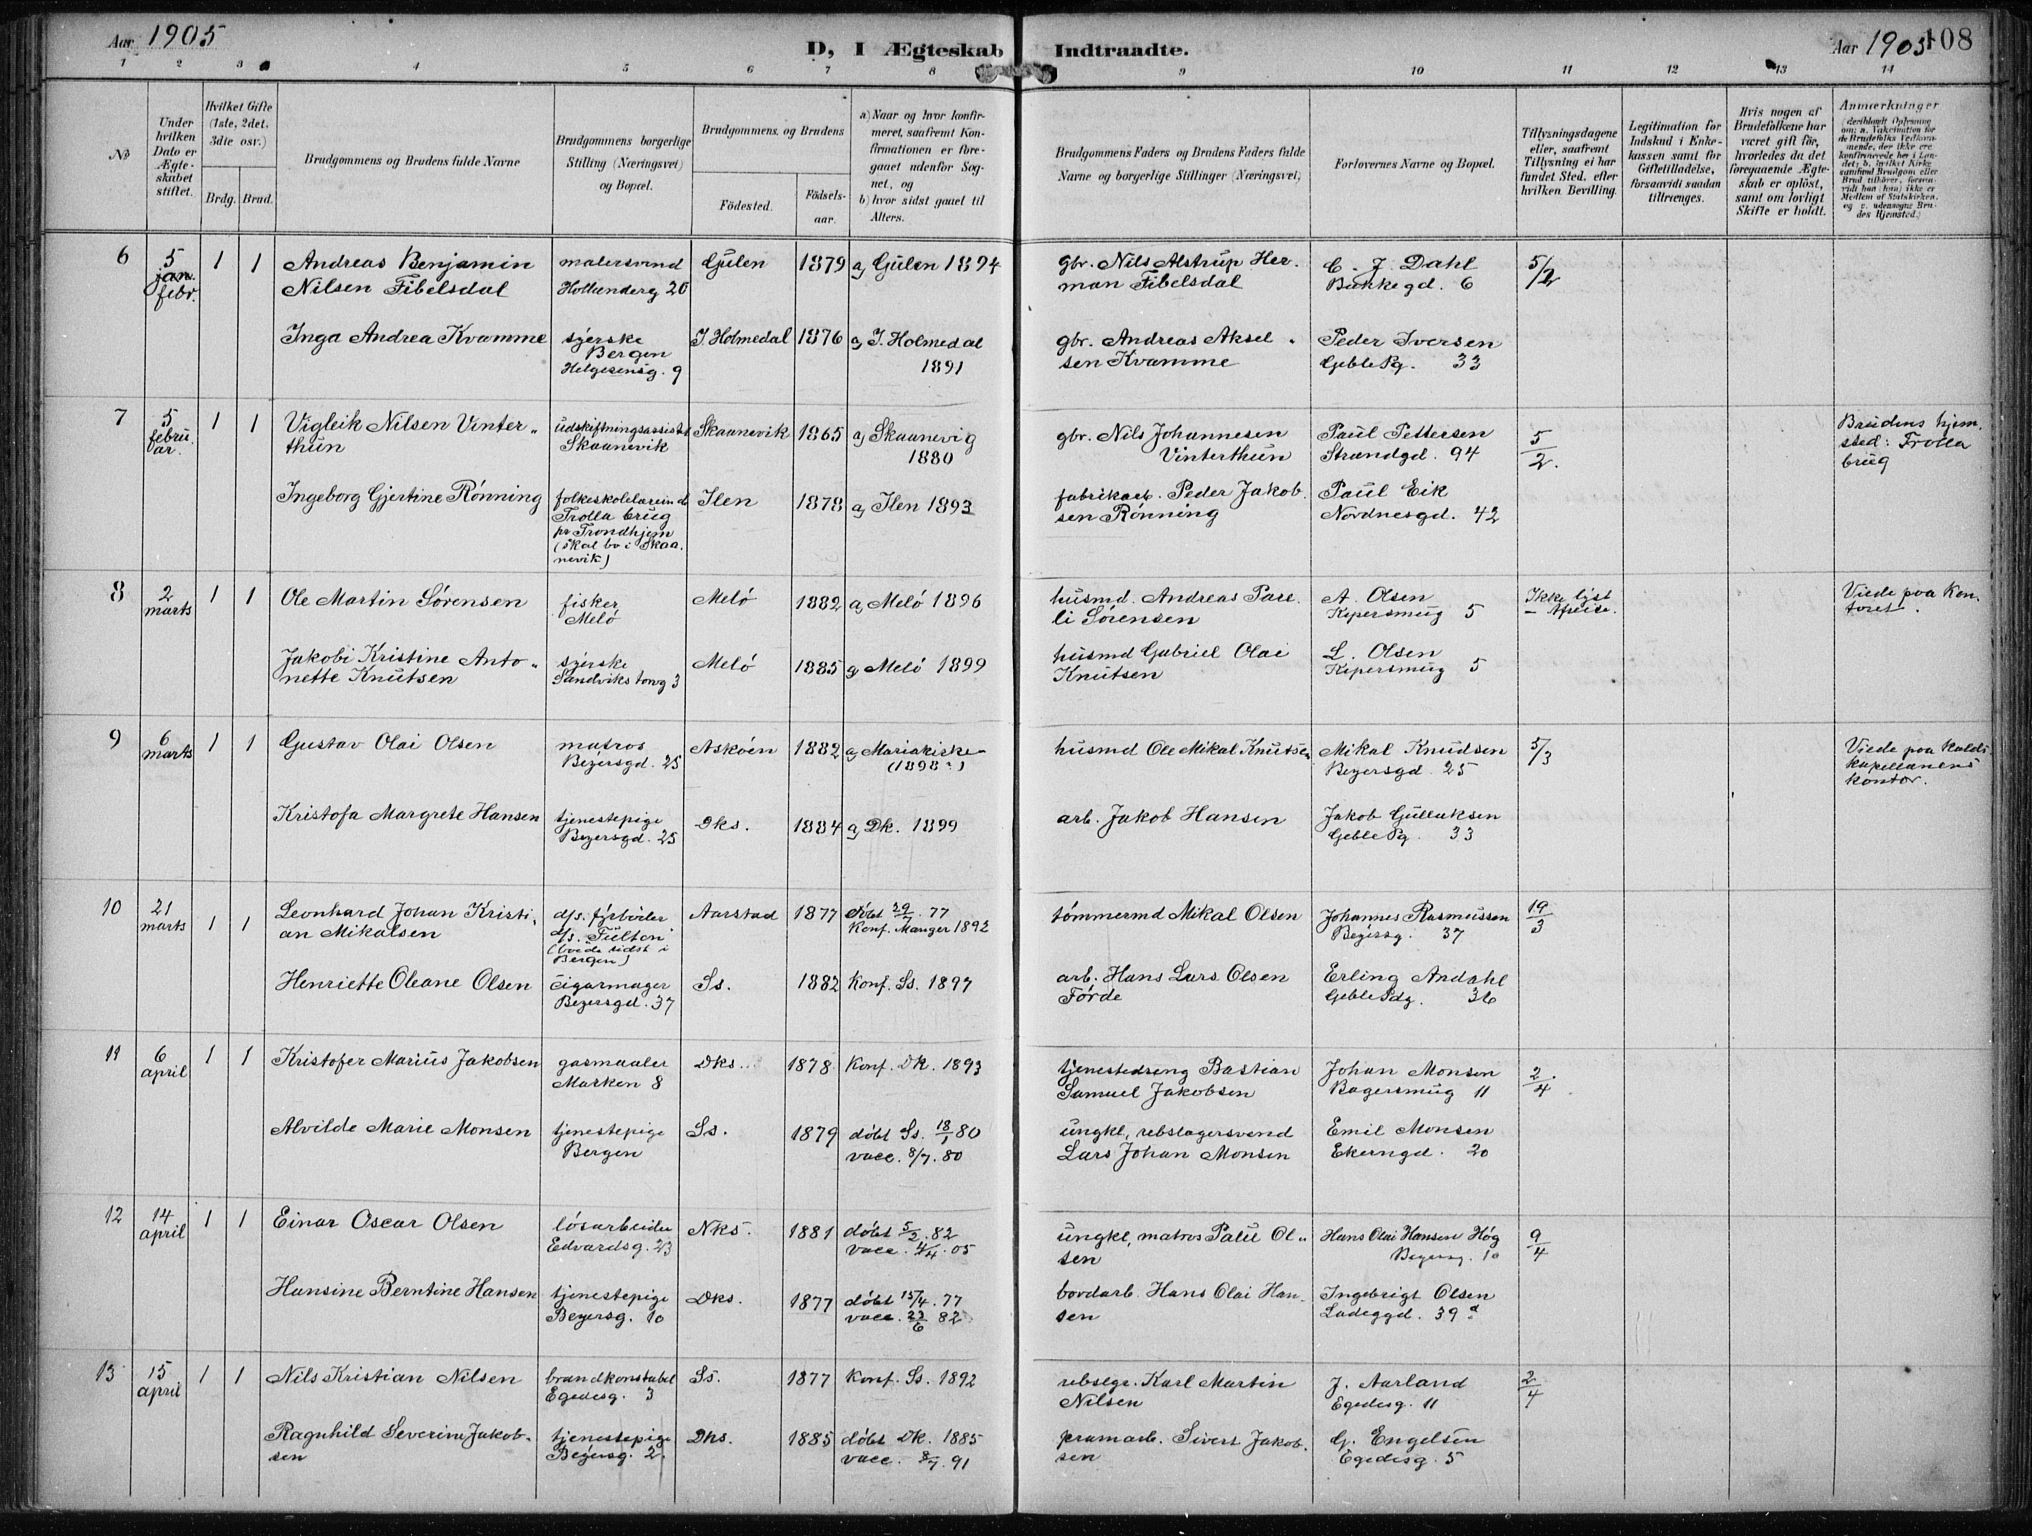 Aar 1905
D, I Ægteskab Indtraadte.
Aar 1905
108
1 2 3 4 5 6 7 8 9 10 11 12 13 14
No
Under hvilken Dato er Ægteskabet stiftet.
Hvilket Gifte (1ste, 2det, 3die osv.)
Brdg. Brud.
Brudgommens og Brudens fulde Navne
Brudgommens borgerlige Stilling (Næringsvei) og Bopæl.
Brudgommens og Brudens
Födested.
Födselsaar.
a) Naar og hvor konfirmeret, saafremt Konfirmationen er foregaaet udenfor Sognet, og
b) hvor sidst gaaet til Alters.
Brudgommens Faders og Brudens Faders fulde Navne og borgerlige Stillinger (Næringsvei)
Forlovernes Navne og Bopæl.
Tillysningsdagene eller, saafremt Tillysning ei har fundet Sted, efter hvilken Bevilling.
Legitimation for Indskud i Enkekassen samt for Giftetilladelse, forsaavidt saadan tiltrænges.
Hvis nogen af Brudefolkene har været gift før, hvorledes da det foregaaende Ægteskab er oplöst, samt om lovligt Skifte er holdt.
Anmærkninger
6
5 jan. febr.
1 1
Andreas Benjamin
Nilsen Fibelsdal
malersvend
Hollenderg 20
Gulen
1879
a) Gulen 1894
gbr. Nils Alstrup Her-
man Fibelsdal
C. J. Dahl
Bakkegd. 6
5/2
Inga Andrea Kvamme
syerske
Bergen
Helgesensg. 9
I. Holmedal
1876
a) I. Holmedal
1891
gbr. Andreas Aksel
sen Kvamme
Peder Iversen
Geble Pg. 33
7
5
febru
ar.
1 1
Vigleik Nilsen Vinter-
thun
udskiftningsassist
Skaanevik
Skaanevik
1865
a) Skaanevig
1880
gbr. Nils Johannesen
Vinterthun
Paul Pettersen
Strandgd. 94
5/2.
Brudens hjem-
sted: Trolla
brug
Ingeborg Gjertine Rønning
Trolla brug
pr Trondhjem
(skal bo i Skaa-
nevik)
Ilen
1878
a) Ilen 1893
fabrikarb. Peder Jakob
sen Rønning
Paul Eik
Nordnesgd. 42
8
2
marts
1 1
Ole Martin Sørensen
fisker
Melø
Melø
1882
a) Melø 1896
husmd. Andreas Pare-
li Sørensen
A. Olsen
Kipersmug 5
Ikke lyst
Viede paa kon-
toret.
Jakobi Kristine Anto-
nette Knutsen
syerske
Melø
1885
a) Melø 1899
husmd Gabriel Olai
Knutsen
L. Olsen
Kipersmug 5
9
6
marts
1 1
Gustav Olai Olsen
matros
Beyersgd. 25
Askøen
1882
a) Mariakirke
(1898?)
husmd Ole Mikal Knutsen
Mikal Knudsen
Beyersgd 25
5/3
Viede paa
kapellanens
kontor.
Kristofa Margrete Hansen
tjenestepige
Beyersgd. 25
Dks.
1884
a) Dk. 1899
arb. Jakob Hansen
Jakob Gullaksen
Geble Pg. 33
10
21
marts
1 1
Leonhard Johan Kristi-
an Mikalsen
d/s. fyrbøder
d/s. "Fulton"
(boede sidst i
Bergen)
Aarstad
1877
døbt 29/7. 77
Konf. Manger 1892
tømmermd Mikal Olsen
Johannes Rasmussen
Beyersg. 37
19/3
Henriette Oleane Olsen
cigarmager
Beyersgd. 37
Ss.
1882
Konf. Ss. 1897
arb. Hans Lars Olsen
Førde
Erling Andahl
Geble Pdg. 36
11
6
april
1 1
Kristofer Marius Jakobsen
gasmaaler
Marken 8
Dks.
1878
Konf. Dk. 1893
tjenestedreng Bastian
Samuel Jakobsen
Johan Monsen
Bagersmug 11
2/4
Alvilde Marie Monsen
tjenestepige
Bergen
Ss.
1879
døbt Ss. 18/1 80
vacc. 8/7. 80
ungkl, rebslagersvend
Lars Johan Monsen
Emil Monsen
Ekerngd. 20
12
14
april
1 1
Einar Oscar Olsen
løsarbeider
Edvardsg. 23
Nks.
1881
døbt 5/2. 82
vacc. 4/4. 05
ungkl, matros Paul Ol-
sen
Hans Olai Hansen Høg
Beyersg. 10
9/4
Hansine Berntine Hansen
tjenestepige
Beyersg. 10
Dks.
1877
døbt 15/4. 77
vacc. 23/6 82
bordarb. Hans Olai Han-
sen
Ingebrigt Olsen
Ladeggd. 39 a
13
15
april
1 1
Nils Kristian Nilsen
brandkonstabel
Egedesg. 3
Ss.
1877
Konf. Ss. 1892
rebslgr. Karl Martin
Nilsen
J. Aarland
Egedesg. 11
2/4
Ragnhild Severine Jakob-
sen
tjenestepige
Beyersg. 2
Dks.
1885
døbt Dk. 1885
vacc. 8/7. 91
pramarb. Sivert Jakob-
sen
G. Engelsen
Egedesg. 5